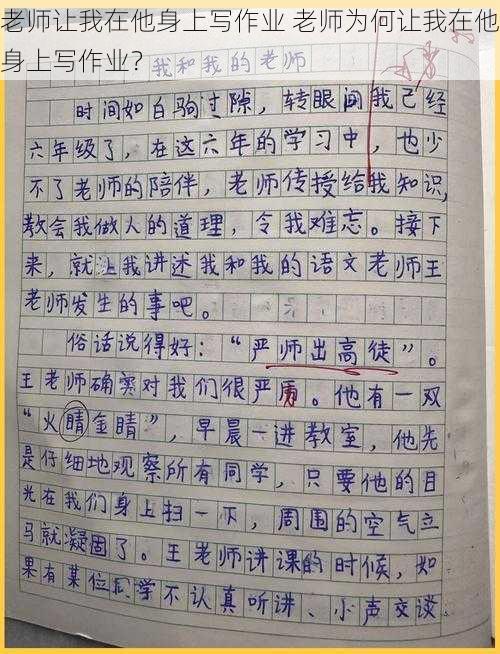 老师让我在他身上写作业 老师为何让我在他
身上写作业？
我和我的老师
时间如白驹过隙，转眼间我已经
六年级了，在这六年的学习中，也少
不了老师的陪伴，老师传授给我知识，
教会我做人的道理，令我难忘。接下
来，就让我讲述我和我的语文老师王
老师发生的事吧。
俗话说得好：“严师出高徒”。
王老师确实对我们很严厉。他有一双
“火睛金睛”，早晨一进教室，他先
是仔细地观察所有同学，只要他的目
光在我们身上扫一下，周围的空气立
马就凝固了。王老师讲课的时候，如
果有某位同学不认真听讲、小声交谈